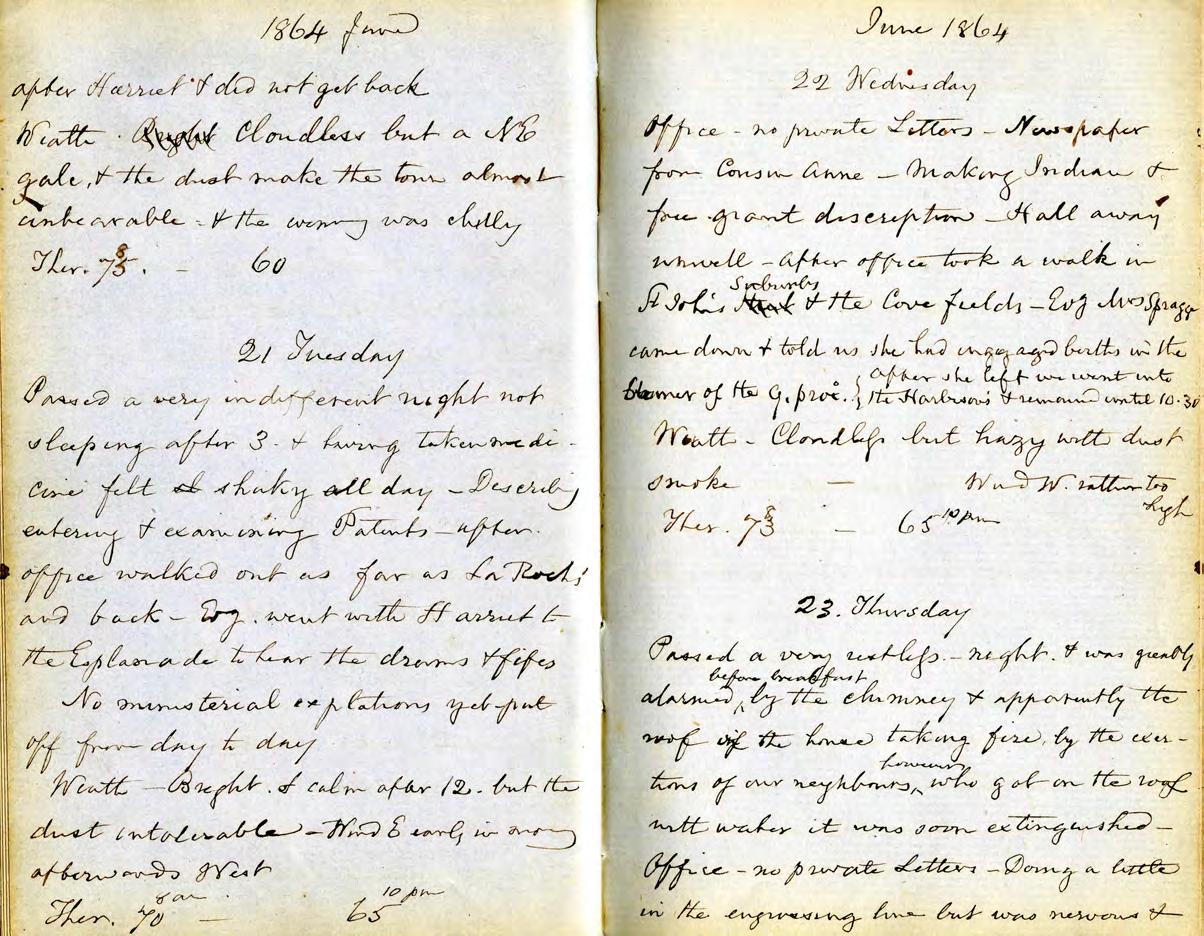 1864 June
after Harriet & did not get back
Weath. Bright Cloudless but a NE
gale, & the dust make the town almost
unbearable - & the evening was chilly
Ther. 73 8. - 60
21 Tuesday
Passed a very indifferent night not
sleeping after 3. & having taken medi-
cine felt shaky all day - Describg
entering & examining Patents - after
office walked out as far as La Rochs
and back - Evg. went with Harriet to
the Esplanade to hear the drums & fifes
No ministerial explations yet put
off from day to day
Weath - Bright & calm after 12. but the
dust intolerable - Wind E early in morng
afterwards West
Ther. 70 8 am - 65 10 pm
June 1864
22 Wednesday
Office - no private Letters - Newspaper
from Cousin Anne - Making Indian &
free grant discription - Hall away
unwell - After office took a walk in
St John's Suburbs & the Cove fields - Evg Mrs Spragge
came down & told us she had ingagaged births in the
Steamer of the G. prov. } after she left we went into
the Harbisons & remained until 10.30
Weath - Cloudless but hazy with dust
smoke - Wind W. rather too
high
Ther. 73 8 - 65 10 pm
23. Thursday
Passed a very restless - night. & was greatly
alarmed, before breakfast by the chimney & apparently the
roof of the house taking fire, by the exer-
tions of our neighbours, however who got on the roof
with water it was soon extinguished -
Office - no private Letters - Doing a little
in the engrossing line but was nervous &